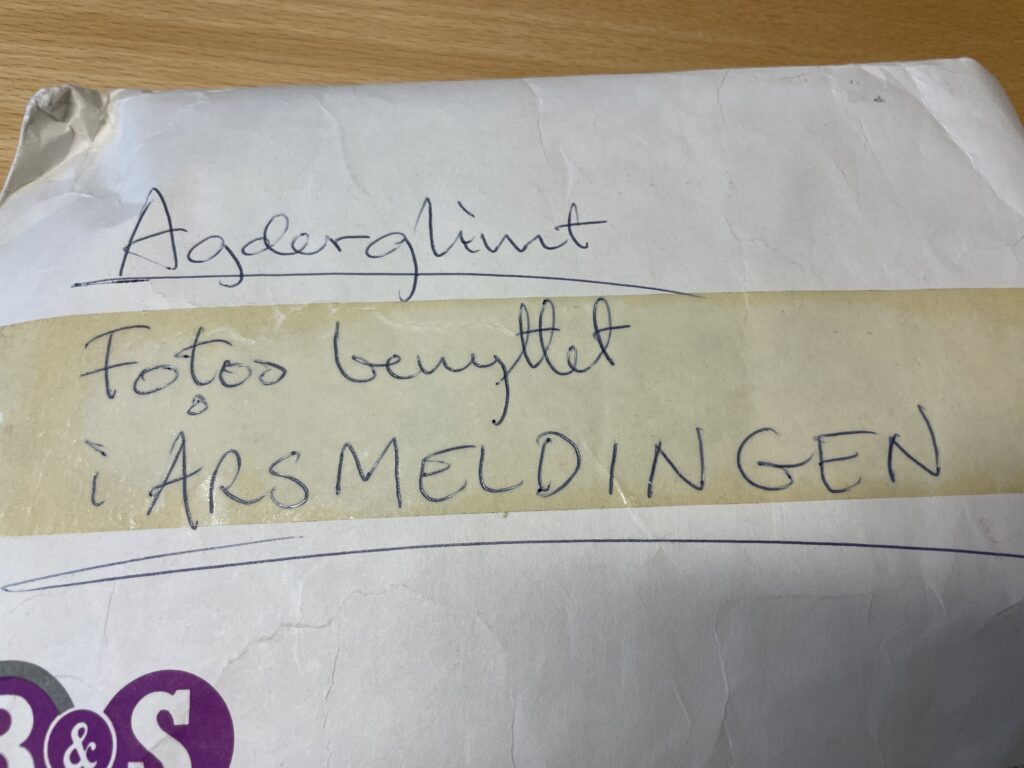 Agderglimt
Fotos benyttet
i ÅRSMELDINGEN
B&S